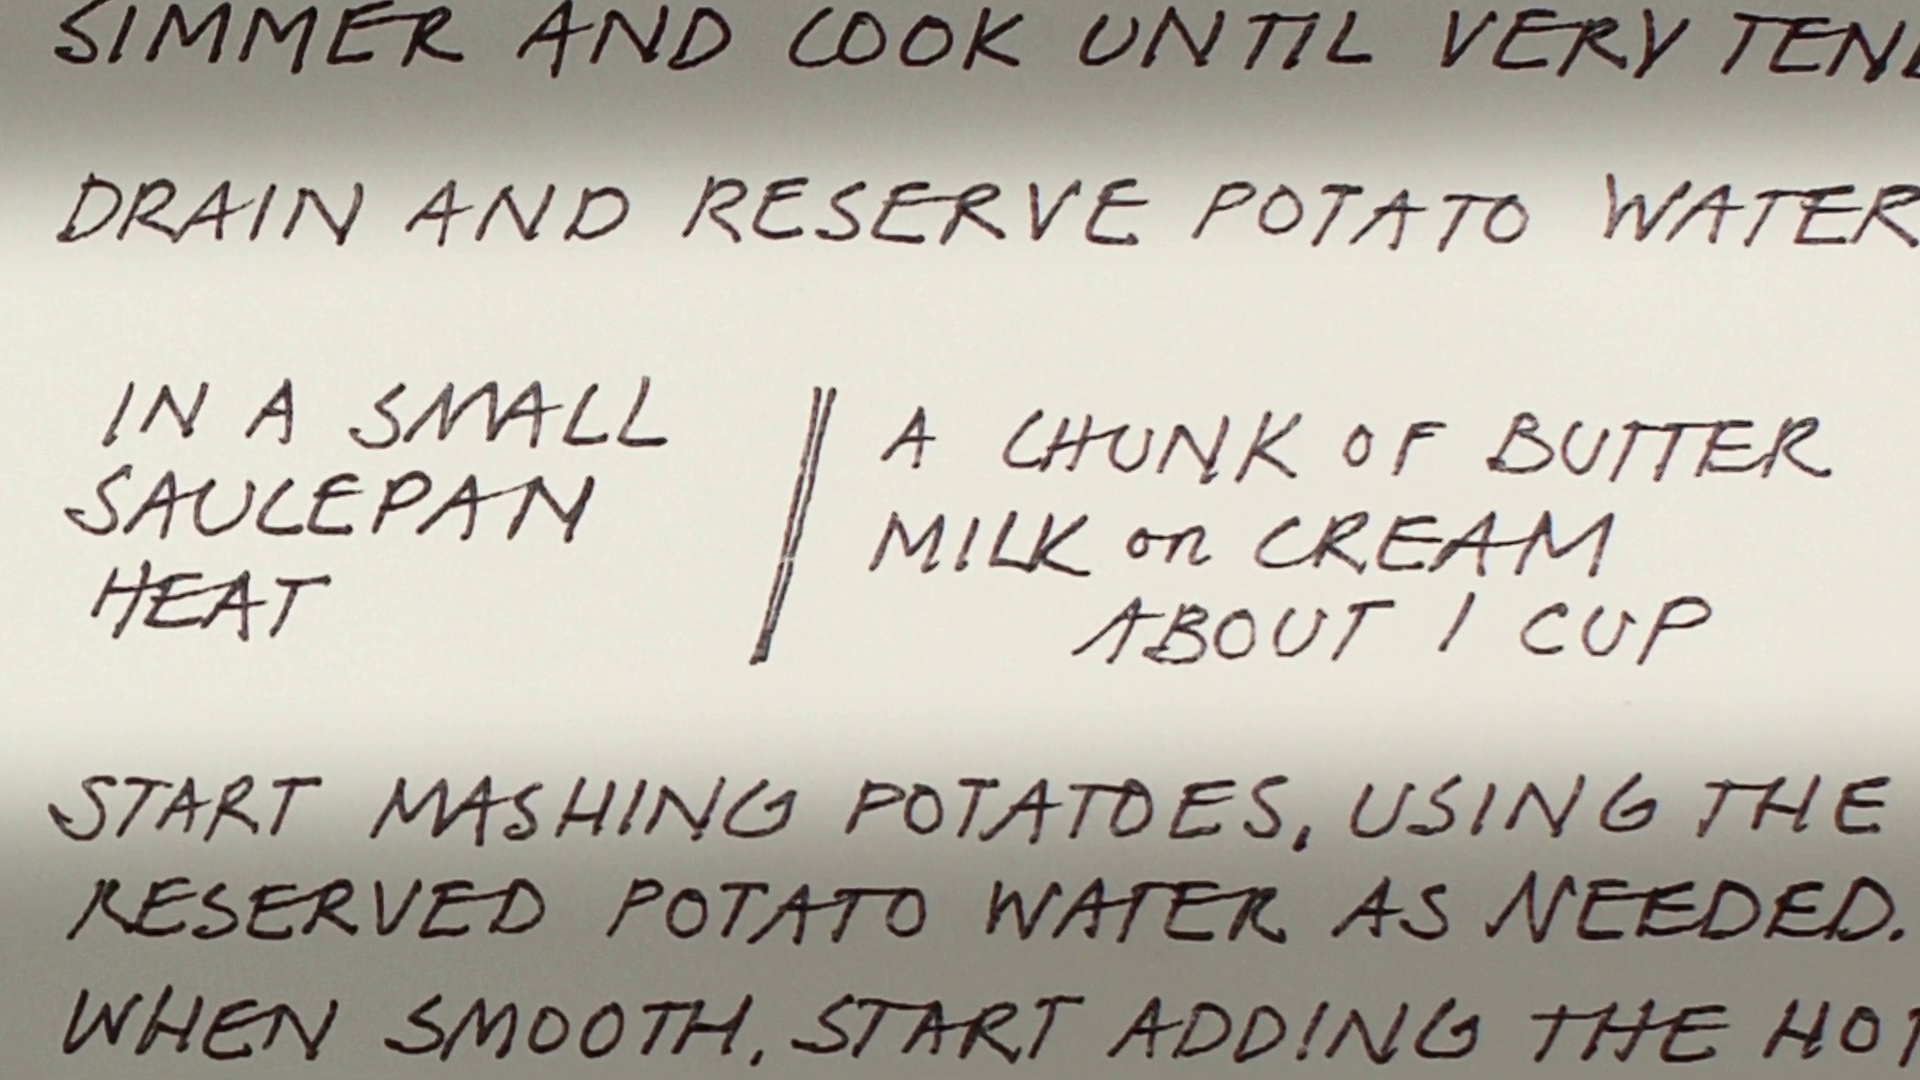 SIMMER AND COOK UNTIL VERY TEND
DRAIN AND RESERVE POTATO WATER
IN A SMALL
SAUCEPAN
HEAT
A CHUNK OF BUTTER
MILK or CREAM
ABOUT 1 CUP
START MASHING POTATOES, USING THE
RESERVED POTATO WATER AS NEEDED.
WHEN SMOOTH, START ADDING THE HOT